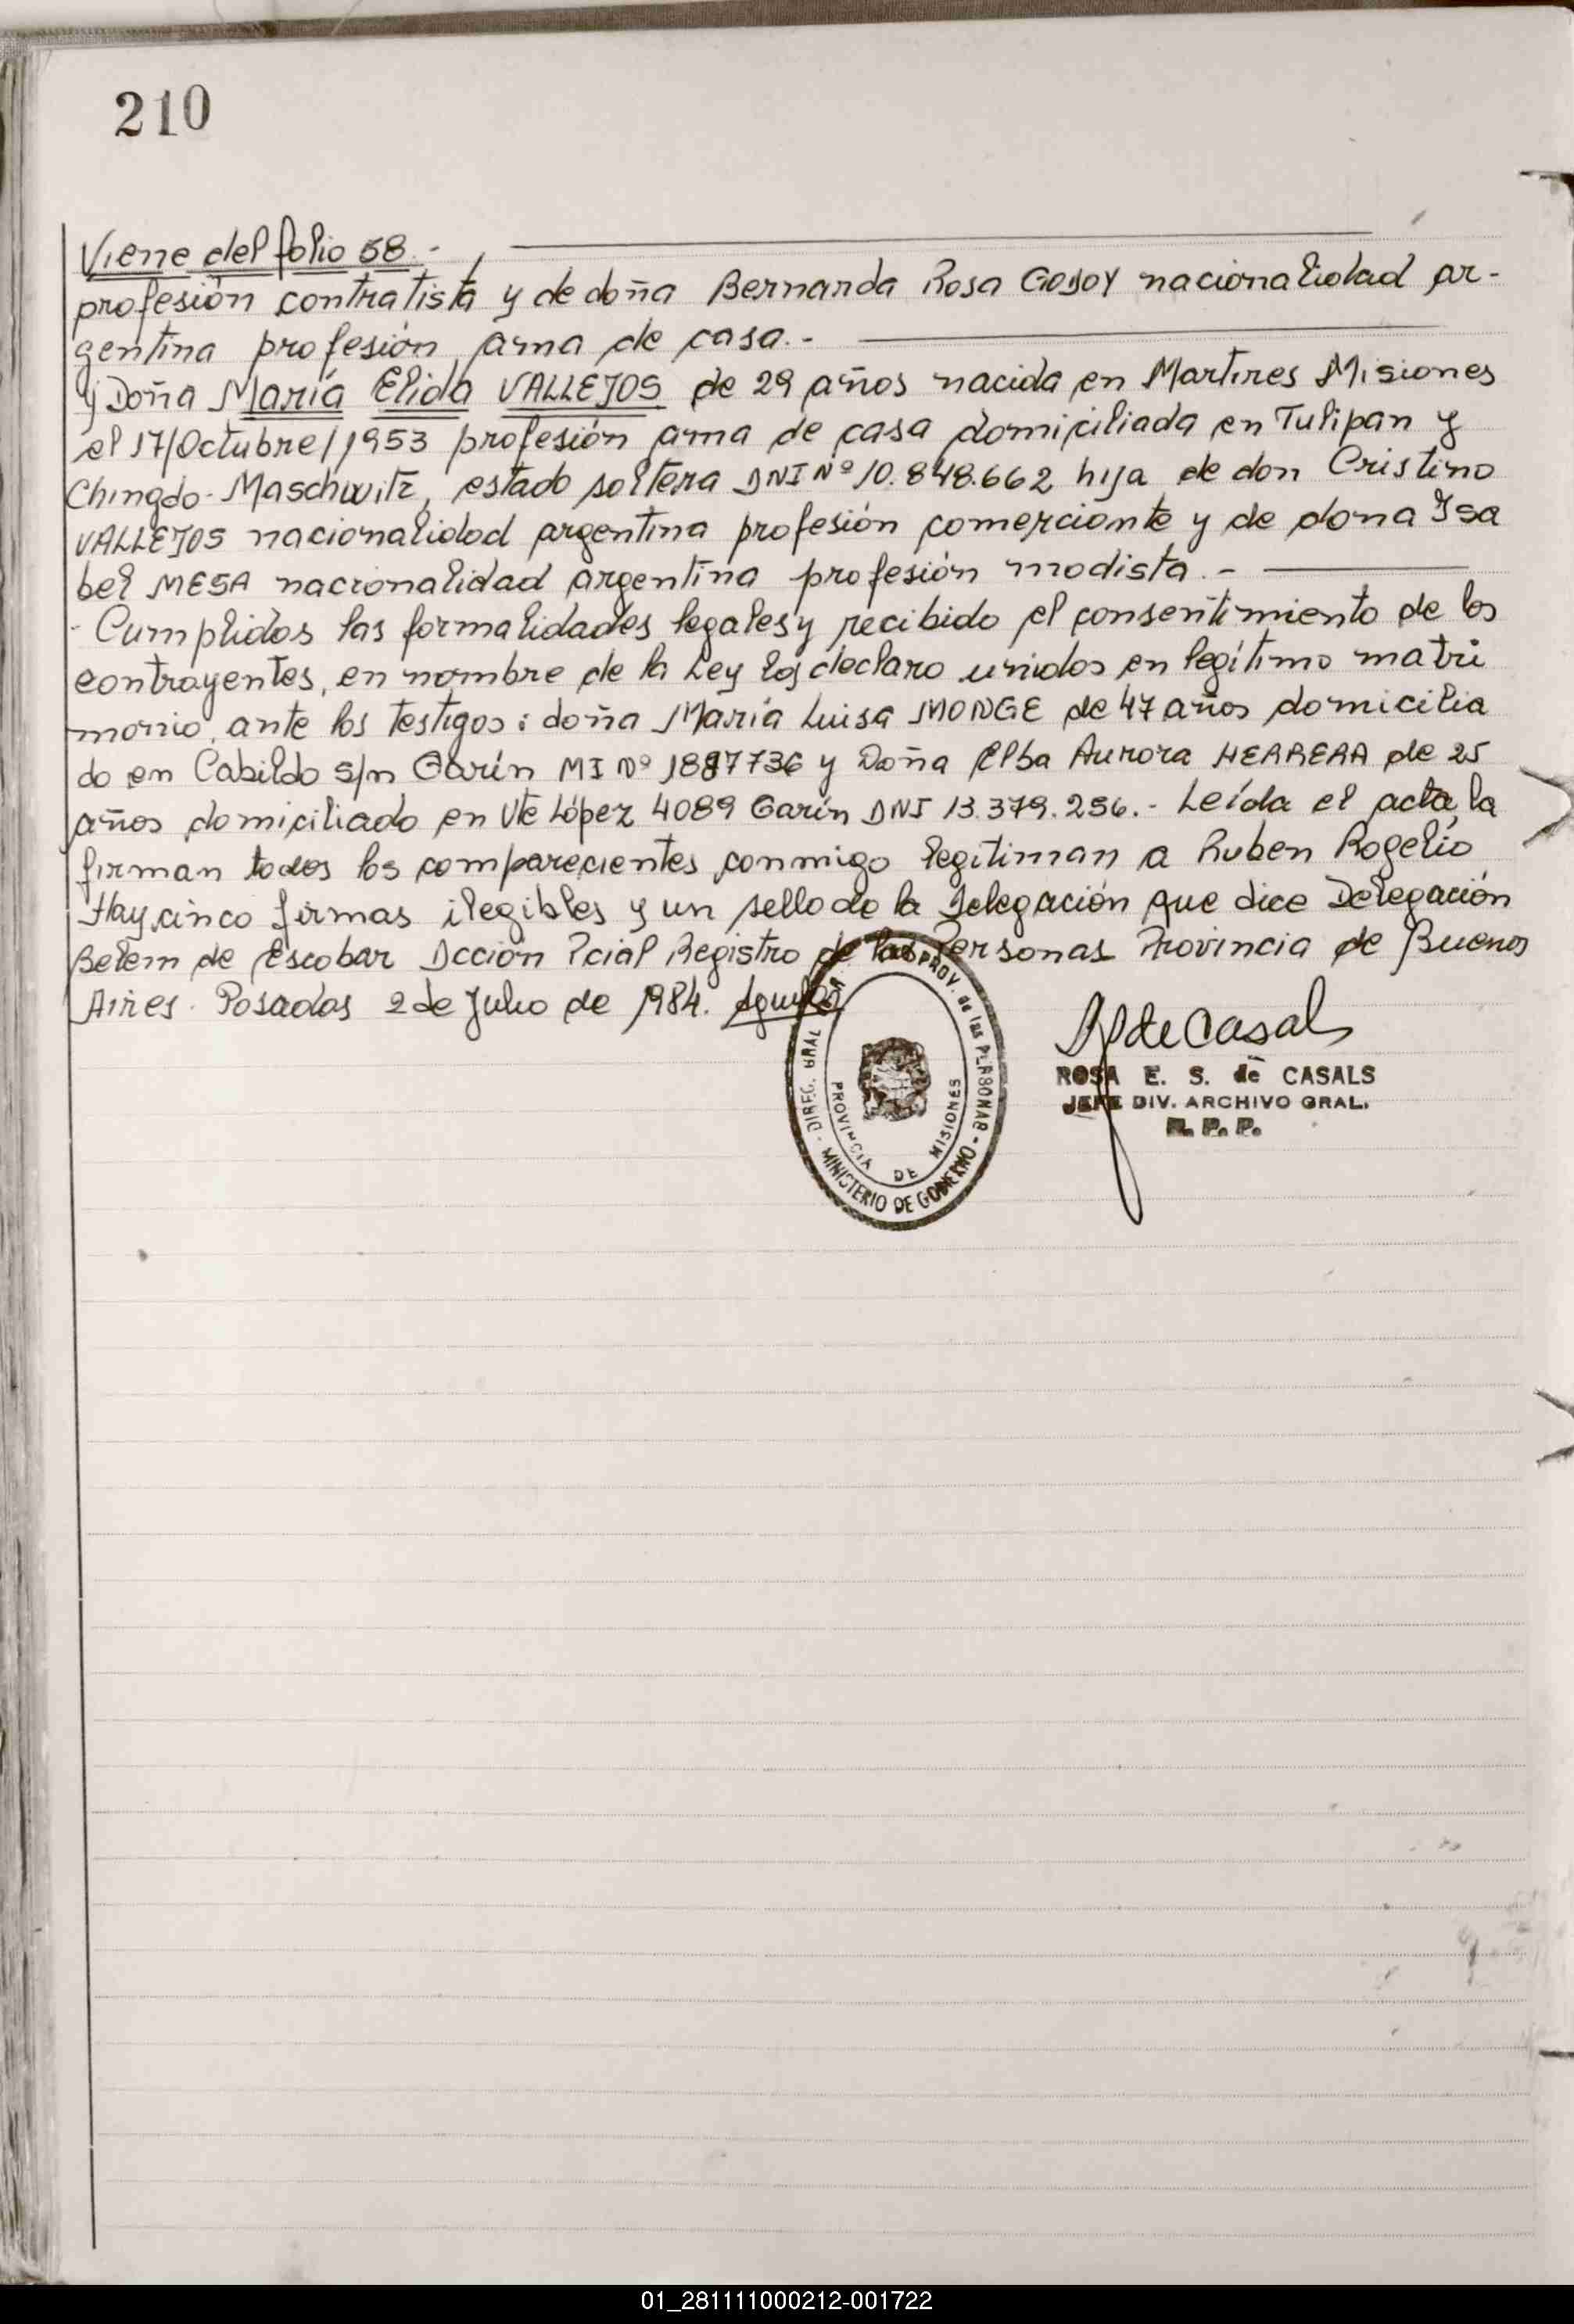 210
Viene del folio 58.-
profesión contratista y de doña Bernarda Rosa GODOY nacionalidad ar-
gentina profesión ama de casa.-
y Doña María Elida VALLEJOS de 29 años nacida en Martires Misiones
el 17/Octubre/1953 profesión ama de casa domiciliada en Tulipan y
Maschwitz, estado soltera DNI Nº 10.848.662 hija de don Cristino
VALLEJOS nacionalidad argentina profesión comerciante y de dona Isa
bel MESA nacionalidad argentina profesión modista.-
- Cumplidos las formalidades legales y recibido el consentimiento de los
contrayentes, en nombre de la Ley los declaro unidos en legítimo matri
monio, ante los testigos: doña María Luisa MONGE de 47 años domicilia
do en Cabildo s/n Garín MI Nº 1887736 y Doña Elba Aurora HERRERA de 25
años domiciliado en Vte López 4089 Garín DNI 13.379.256.- Leída el acta, la
firman todos los comparecientes conmigo legitiman a Ruben Rogelio
Hay cinco firmas ilegibles y un sello de la Delegación que dice Delegación
Belem de Escobar Dcción Pcial Registro de las Personas Provincia de Buenos
Aires. Posadas 2 de Julio de 1984.
DIREC. GRAL PROV. de las PERSONAS - MINISTERIO DE GOBIERNO -
PROVINCIA DE MISIONES
ROSA E. S. de CASALS
JEFE DIV. ARCHIVO GRAL.
R. P. P.
01_281111000212-001722